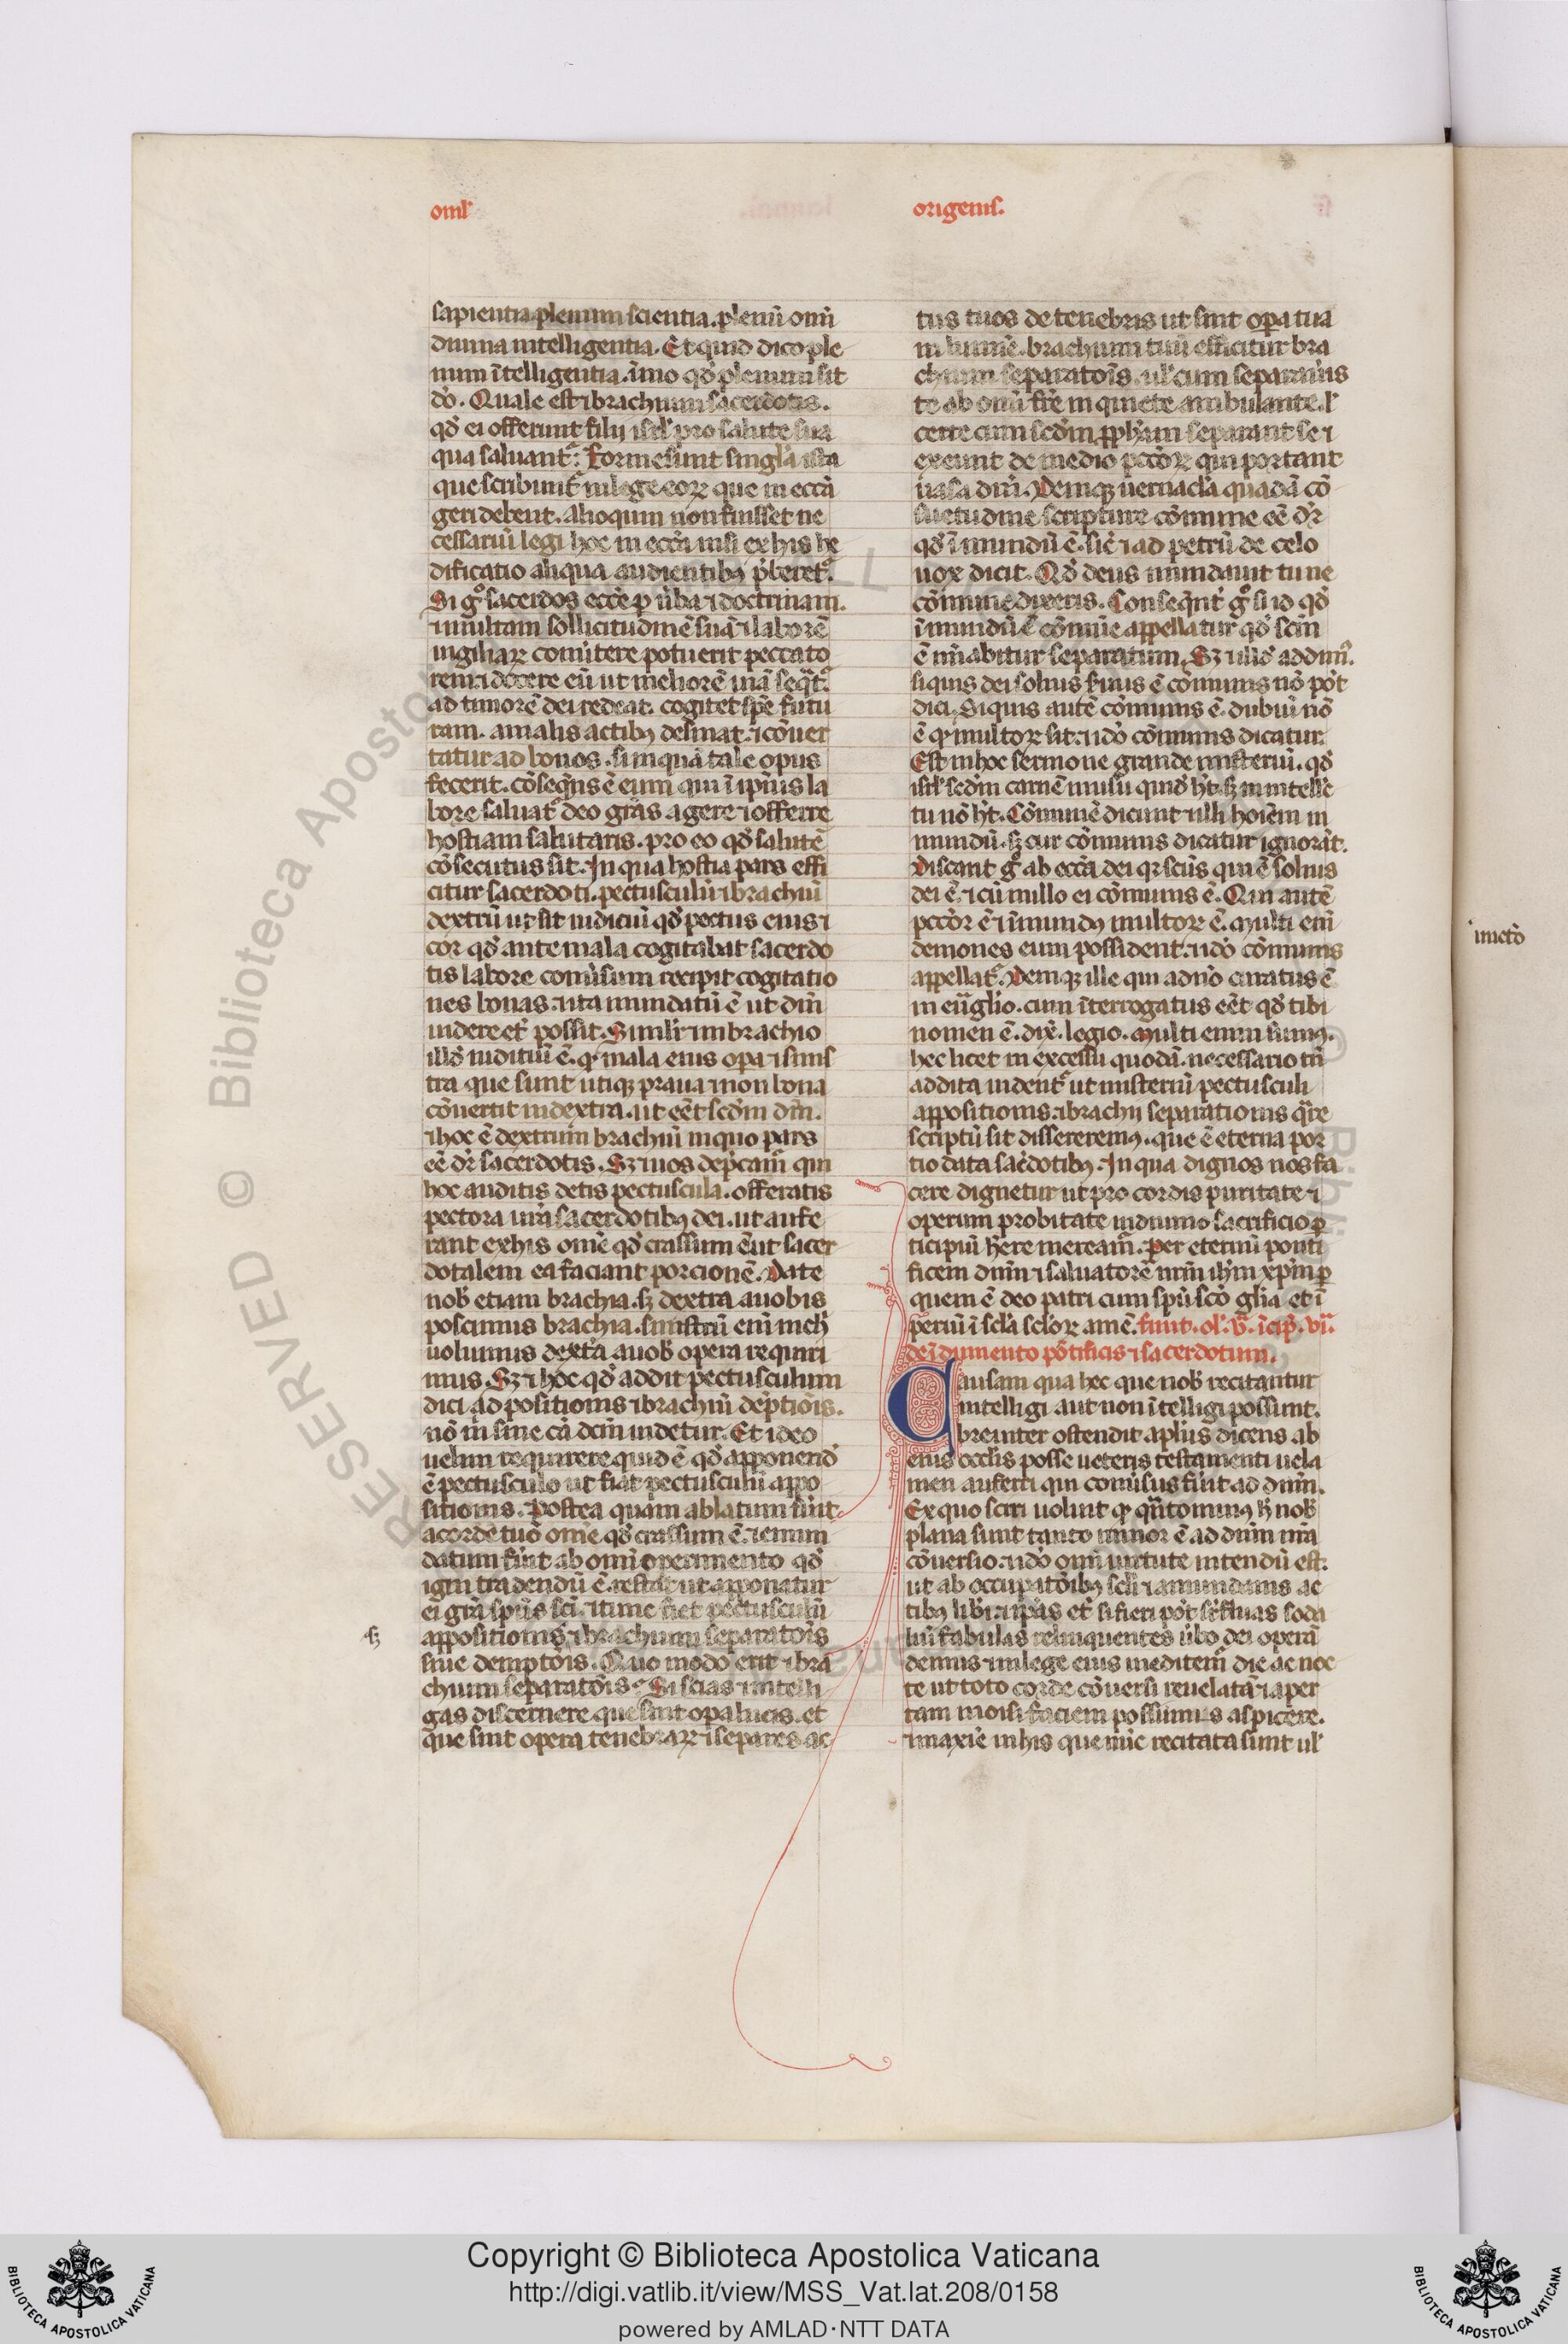 oml'
origenis.
sapientia plenum scientia. plenū omī
diuina intelligentia. Et quid dico ple
num ītelligentia. īmo qd' plenum sit
dō. Quale est ⁊ brachium sacerdotis.
qd' ei offerunt filij isrl' pro salute sua
qua saluant᷑. Forme sunt singl'a ista
que scribunt᷑ in lege eoꝝ que in eccā
geri debent. alioquin non fuisset ne
cessariū legi hoc in eccā nisi ex his he
dificatio aliqua audientibꝫ p̄beret᷑.
Si gͦ sacerdos ecc̄e ꝑ ūba ⁊ doctrinam.
⁊ multam sollicitudinē suā ⁊ laborē
uigiliaꝝ conūtere potuerit peccato
rem ⁊ docere eū ut meliorē uiā seqt᷑᷑
ad timorē dei redeat. cogitet spē futu
ram. a malis actibꝫ desinat. ⁊ cōuer
tatur ad bonos. si inquā tale opus
fecerit. cōseq̄ns ē eum qui ī ip̄ius la
bore saluat᷑ deo grās agere ⁊ offerre
hostiam salutaris. pro eo qd' salutē
cōsecutus sit. In qua hostia pars effi
citur sacerdoti. pectusculū ⁊ brachiū
dextrū ut sit iudiciū qd' pectus eius ⁊
cor qd' ante mala cogitabat sacerdo
tis labore conūsum recipit cogitatio
nes bonas. ⁊ ita mundatū ē ut dm̄
uidere et' possit. Simil'r ⁊ in brachio
ill'd iuditiū ē. ꝙ mala eius opa ⁊ sinis
tra que sunt utiqꝫ praua ⁊ non bona
cōuertit in dextra. ut eēt sedm̄ dm̄.
⁊ hoc ē dextrum brachiū in quo pars
eē dr̄ sacerdotis. Sꝫ ⁊ uos dep̄cam᷑ qui
hoc auditis detis pectuscula. offeratis
pectora ur̄a sacerdotibꝫ dei. ut aufe
rant ex his omē qd' crassum ē ut sacer
dotalem ea faciant porcionē. Date
nob' etiam brachia. sꝫ dextra a uobis
poscimus brachia. sinistrū enī nich'
uolumus dext̄a a uob' opera requiri
mus. Sꝫ ⁊ hoc qd' addit pectusculum
dici ad positionis ⁊ brachiū dep̄tiōis.
nō m̄ sine cā dc̄m uidetur. Et ideo
uelim requirere quid ē qd' apponend'
ē pectusculo ut fiat pectusculū appo
sitionis. Postea quam ablatum fūit
a corde tuo omē qd' crassum ē. ⁊ emun
datum fūit ab omi operimento qd'
igni tradendū ē. restat ut apponatur
ei gr̄a sp̄us sc̄i. ⁊ tunc fiet pectusculū
appositionis ⁊ brachium separatōis
siue demptōis. Quo modo erit ⁊ bra
chium separatōis. Si scias ⁊ intelli
gas discernere que sint opa lucis. et
que sint opera tenebraꝝ ⁊ separes ac
sꝫ
tus tuos de tenebris ut sint opa tua
in lumīe. brachium tuū efficitur bra
chium separatōis. ul' cum separaūis
te ab omī fr̄e inquiete ambulante. l'
certe cum sedm̄ ꝓph̄am separant se ⁊
exeunt de medio pcc̄oꝝ qui portant
uasa dn̄i. Deniqꝫ uernacl'a quadā cō
suetudine scripture cōmune eē dr̄
qd' ī mundū ē. sic̄ ⁊ ad petrū de celo
uox dicit. Qd' deus mundauit tu ne
cōmune dixeris. Conseq̄nt gͦ si id qd'
ī mundū ē cōmūe appellatur qd' sc̄m
ē nīabitur separatum. Sꝫ ⁊ ill'd addim᷑.
si quis dei solius seruus ē cōmunis nō pōt
dici. Si quis autē cōmunis ē. dubiū nō
ē ꝙ multoꝝ sit. ⁊ idō cōmunis dicatur.
Est in hoc sermone grande misteriū. qd'
isrl' sedm̄ carnē in usu quid' h̄t. sꝫ in intelle
tu nō h̄t. Cōmunē dicunt ⁊ illi hoīem in
mundū. sꝫ cur cōmunis dicatur ignorāt.
Discant gͦ ab eccā dei qꝛ sc̄us qui ē solius
dei ē. ⁊ cū nullo ei cōmunis ē. Qui autē
pcc̄or ē ⁊ īmundꝫ multoꝝ ē. Multi enī
demones eum possident. ⁊ idō cōmunis
appellat᷑. Deniqꝫ ille qui a dn̄o curatus ē
in eūglio. cum īterrogatus eēt qd' tibi
nomen ē. dix̄. legio. Multi enim sumꝫ.
hec licet in excessu quodā. necessario tn̄
addita uident᷑ ut misteriū pectusculi
appositionis. ⁊ brachij separationis q̄re
scriptū sit dissereremꝫ. que ē eterna por
tio data sac̄dotibꝫ. In qua dignos nos fa
cere dignetur ut pro cordis puritate ⁊
operum probitate in diuino sacrificio ꝑ
ticipiū h̄ere mereām᷑. Per eternū ponti
ficem dn̄m ⁊ saluatorē nr̄m ih̄m xp̄m ꝑ
quem ē deo patri cum sp̄u sc̄o gl'ia et ī
periū ī scl'a scl'oꝝ amē. finit. ol'. v̄. īcip̄. vī.
de īdumento pōtificis ⁊ sacerdotum.
Causam qua hec que nob' recitantur
intelligi aut non ītelligi possunt.
breuiter ostendit apl'us dicens ab
eius occl'is posse ueteris testamenti uela
men auferri qui conūsus fūit ad dn̄m.
Ex quo sciri uoluit ꝙ q̄ntominꝫ h̄ nob'
plana sunt tanto minor ē ad dn̄m nr̄a
cōuersio. ⁊ idō omī uirtute intendū est.
ut ab occupatōibꝫ scl'i ⁊ a mundanis ac
tibꝫ lib'i. ⁊ ip̄as et' si fieri pōt suꝑfluas soda
liū fabulas relinquentes ūbo dei operā
demus ⁊ in lege eius meditem᷑ die ac noc
te ut toto corde cōuersi reuelatā ⁊ aper
tam moisi faciem possimus aspicere.
⁊ maxīe in his que nūc recitata sunt ul'
Copyright © Biblioteca Apostolica Vaticana
http://digi.vatlib.it/view/MSS_Vat.lat.208/0158
powered by AMLAD·NTT DATA
BIBLIOTECA APOSTOLICA VATICANA
BIBLIOTECA APOSTOLICA VATICANA